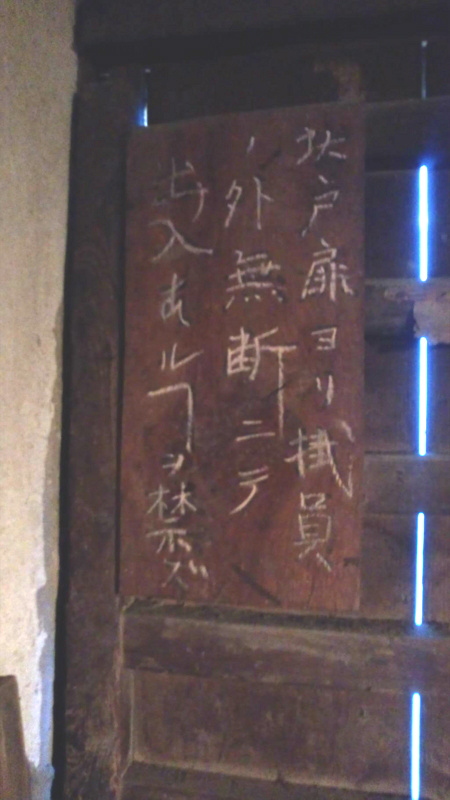 此戸扉ヨリ掛員
ノ外無断ニテ
出入あルヿヲ禁ズ